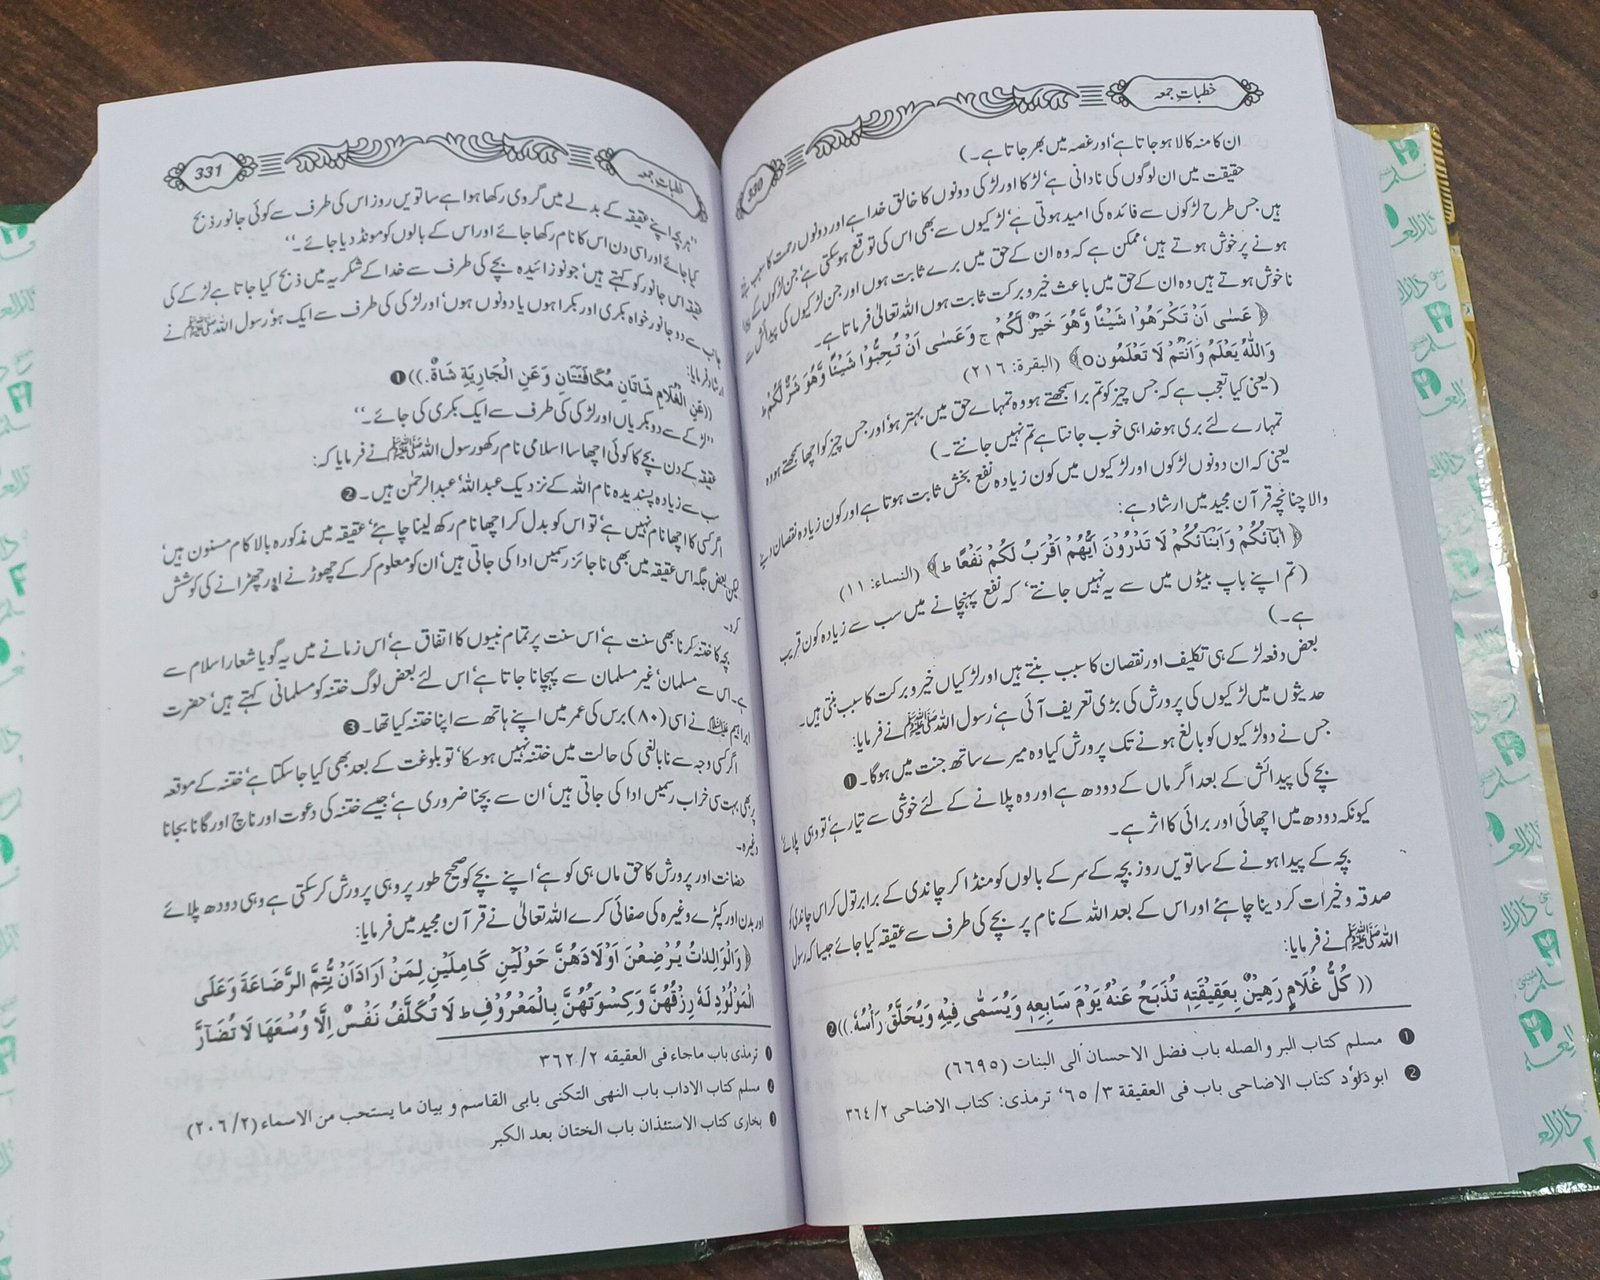 خطباتِ جمعہ
330
ان کا منہ کالا ہو جاتا ہے‘ اور غصہ میں بھر جاتا ہے۔)
حقیقت میں ان لوگوں کی نادانی ہے‘ لڑکا اور لڑکی دونوں کا خالق خدا ہے اور دونوں رحمت کا سبب بنتے
ہیں جس طرح لڑکوں سے فائدہ کی امید ہوتی ہے‘ لڑکیوں سے بھی اس کی توقع ہو سکتی ہے‘ جن لڑکوں کے پیدا
ہونے پر خوش ہوتے ہیں‘ ممکن ہے کہ وہ ان کے حق میں برے ثابت ہوں اور جن لڑکیوں کی پیدائش سے
ناخوش ہوتے ہیں وہ ان کے حق میں باعث خیر و برکت ثابت ہوں اللہ تعالیٰ فرماتا ہے۔
﴿ عَسٰى اَنْ تَكْرَهُوْا شَيْئًا وَّهُوَ خَيْرٌ لَّكُمْ ج وَعَسٰى اَنْ تُحِبُّوْا شَيْئًا وَّهُوَ شَرٌّ لَّكُمْ ط
وَاللّٰهُ يَعْلَمُ وَاَنْتُمْ لَا تَعْلَمُوْن٥﴾ (البقرة: ٢١٦)
(یعنی کیا تعجب ہے کہ جس چیز کو تم برا سمجھتے ہو وہ تمہارے حق میں بہتر ہو‘ اور جس چیز کو اچھا سمجھتے ہو وہ
تمہارے لئے بری ہو خدا ہی خوب جانتا ہے تم نہیں جانتے۔)
یعنی کہ ان دونوں لڑکوں اور لڑکیوں میں کون زیادہ نفع بخش ثابت ہوتا ہے اور کون زیادہ نقصان دینے
والا چنانچہ قرآن مجید میں ارشاد ہے:
﴿ اٰبَآئُكُمْ وَاَبْنَآئُكُمْ لَا تَدْرُوْنَ اَيُّهُمْ اَقْرَبُ لَكُمْ نَفْعًا ط﴾ (النساء: ١١)
(تم اپنے باپ بیٹوں میں سے یہ نہیں جانتے‘ کہ نفع پہنچانے میں سب سے زیادہ کون قریب
ہے۔)
بعض دفعہ لڑکے ہی تکلیف اور نقصان کا سبب بنتے ہیں اور لڑکیاں خیر و برکت کا سبب بنتی ہیں۔
حدیثوں میں لڑکیوں کی پرورش کی بڑی تعریف آئی ہے‘ رسول اللہ ﷺ نے فرمایا:
جس نے دو لڑکیوں کو بالغ ہونے تک پرورش کیا وہ میرے ساتھ جنت میں ہوگا۔ ❶
بچے کی پیدائش کے بعد اگر ماں کے دودھ ہے اور وہ پلانے کے لئے خوشی سے تیار ہے‘ تو وہی پلائے
کیونکہ دودھ میں اچھائی اور برائی کا اثر ہے۔
بچہ کے پیدا ہونے کے ساتویں روز بچہ کے سر کے بالوں کو منڈا کر چاندی کے برابر تول کر اس چاندی کو
صدقہ و خیرات کر دینا چاہئے اور اس کے بعد اللہ کے نام پر بچے کی طرف سے عقیقہ کیا جائے جیسا کہ رسول
اللہ ﷺ نے فرمایا:
(( كُلُّ غُلَامٍ رَهِيْنٌ بِعَقِيْقَتِهٖ تُذْبَحُ عَنْهُ يَوْمَ سَابِعِهٖ وَيُسَمّٰى فِيْهِ وَيُحْلَقُ رَأْسُهٗ.))❷
❶ مسلم كتاب البر والصله باب فضل الاحسان الى البنات (٦٦٩٥)
❷ ابو داؤد كتاب الاضاحى باب فى العقيقة ٣/ ٦٥‘ ترمذى: كتاب الاضاحى ٢/ ٣٦٤
خطباتِ جمعہ
331
”ہر بچہ اپنے عقیقہ کے بدلے میں گروی رکھا ہوا ہے ساتویں روز اس کی طرف سے کوئی جانور ذبح
کیا جائے اور اسی دن اس کا نام رکھا جائے اور اس کے بالوں کو مونڈ دیا جائے۔“
عقیقہ اس جانور کو کہتے ہیں‘ جو نوزائیدہ بچے کی طرف سے خدا کے شکریہ میں ذبح کیا جاتا ہے لڑکے کی
جانب سے دو جانور خواہ بکری اور بکرا ہوں یا دونوں ہوں‘ اور لڑکی کی طرف سے ایک ہو‘ رسول اللہ ﷺ نے
ارشاد فرمایا:
((عَنِ الْغُلَامِ شَاتَانِ مُكَافَئَتَانِ وَعَنِ الْجَارِيَةِ شَاةٌ.))❶
”لڑکے سے دو بکریاں اور لڑکی کی طرف سے ایک بکری کی جائے۔“
عقیقہ کے دن بچے کا کوئی اچھا سا اسلامی نام رکھو رسول اللہ ﷺ نے فرمایا کہ:
سب سے زیادہ پسندیدہ نام اللہ کے نزدیک عبداللہ‘ عبدالرحمٰن ہیں۔ ❷
اگر کسی کا اچھا نام نہیں ہے‘ تو اس کو بدل کر اچھا نام رکھ لینا چاہئے‘ عقیقہ میں مذکورہ بالا کام مسنون ہیں‘
لیکن بعض جگہ اس عقیقہ میں بھی ناجائز رسمیں ادا کی جاتی ہیں‘ ان کو معلوم کر کے چھوڑنے اور چھڑانے کی کوشش
کرو۔
بچہ کا ختنہ کرنا بھی سنت ہے‘ اس سنت پر تمام نبیوں کا اتفاق ہے‘ اس زمانے میں یہ گویا شعار اسلام سے
ہے۔ اس سے مسلمان‘ غیر مسلمان سے پہچانا جاتا ہے‘ اس لئے بعض لوگ ختنہ کو مسلمانی کہتے ہیں‘ حضرت
ابراہیم علیہ السلام نے اسی (۸۰) برس کی عمر میں اپنے ہاتھ سے اپنا ختنہ کیا تھا۔ ❸
اگر کسی وجہ سے نابالغی کی حالت میں ختنہ نہیں ہو سکا‘ تو بلوغت کے بعد بھی کیا جا سکتا ہے‘ ختنہ کے موقعہ
پر بھی بہت سی خراب رسمیں ادا کی جاتی ہیں‘ ان سے بچنا ضروری ہے‘ جیسے ختنہ کی دعوت اور ناچ اور گانا بجانا
وغیرہ۔
حضانت اور پرورش کا حق ماں ہی کو ہے‘ اپنے بچے کو صحیح طور پر وہی پرورش کر سکتی ہے وہی دودھ پلائے
اور بدن اور کپڑے وغیرہ کی صفائی کرے اللہ تعالیٰ نے قرآن مجید میں فرمایا:
﴿ وَالْوَالِدٰتُ يُرْضِعْنَ اَوْلَادَهُنَّ حَوْلَيْنِ كَامِلَيْنِ لِمَنْ اَرَادَ اَنْ يُّتِمَّ الرَّضَاعَةَ وَعَلَى
الْمَوْلُوْدِ لَهٗ رِزْقُهُنَّ وَكِسْوَتُهُنَّ بِالْمَعْرُوْفِ ط لَا تُكَلَّفُ نَفْسٌ اِلَّا وُسْعَهَا لَا تُضَآرَّ
❶ ترمذى باب ماجاء فى العقيقه ٢/ ٣٦٢
❷ مسلم كتاب الاداب باب النهى التكنى بابى القاسم و بيان ما يستحب من الاسماء (٢/ ٢٠٦)
❸ بخارى كتاب الاستئذان باب الختان بعد الكبر